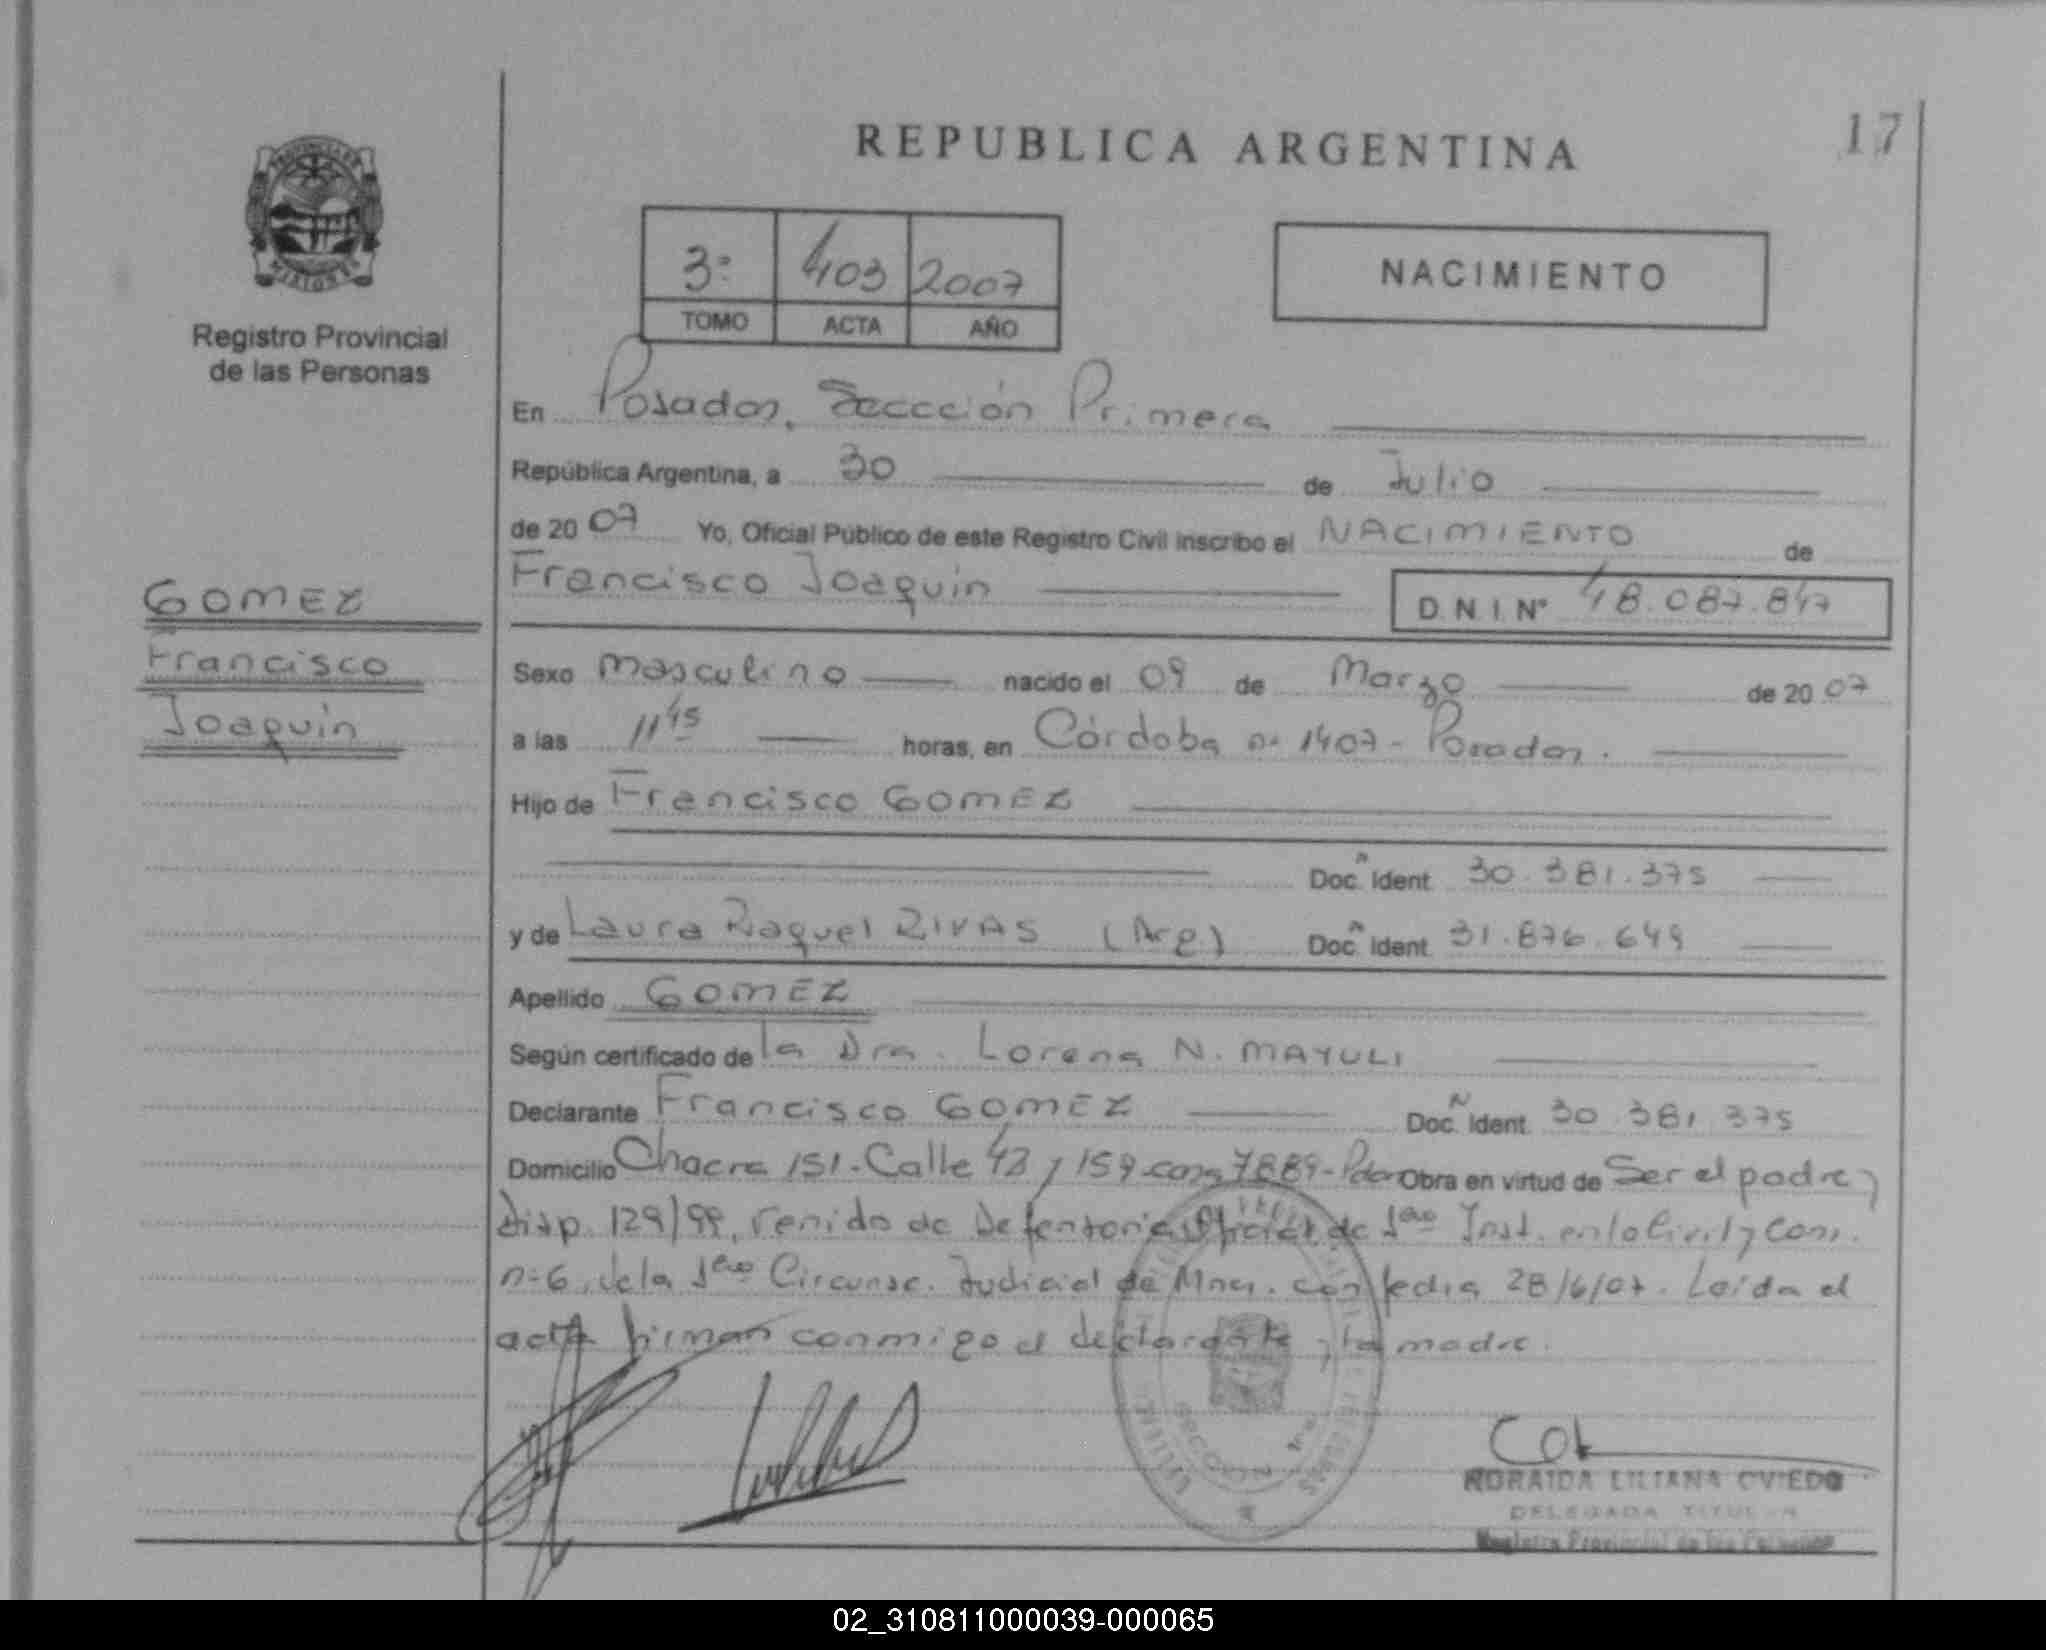 REPUBLICA ARGENTINA
17
3º 403 2007
TOMO ACTA AÑO
NACIMIENTO
Registro Provincial
de las Personas
En Posadas, Seccción Primera
República Argentina, a 30 de Julio
de 2007 Yo, Oficial Público de este Registro Civil inscribo el NACIMIENTO de
Francisco Joaquín D.N.I. Nº 48.087.847
GOMEZ
Francisco
Joaquín
Sexo masculino nacido el 09 de Marzo de 2007
a las 11 45 horas, en Córdoba nº 1407 - Posadas.
Hijo de Francisco GOMEZ
Doc. Ident. 30.381.375
y de Laura Raquel RIVAS (Arg) Doc. Ident. 31.876.649
Apellido GOMEZ
Según certificado de la Dra. Lorena N. MAYULI
Declarante Francisco GOMEZ Doc. Ident. 30.381.375
Domicilio Chacra 151 - Calle 43 y 159 casa 7889 - Pdas Obra en virtud de Ser el padre y
disp. 129/99, venido de Defensoria Oficial de 1era Inst. en lo Civil y Com.
nº 6, de la 1era Circunsc. Judicial de Mnes. con fecha 28/6/07. Leída el
acta firman conmigo el declarante y la madre.
SECCION 1ra
NORAIDA LILIANA OVIEDO
DELEGADA TITULAR
Registro Provincial de las Personas
02_310811000039-000065